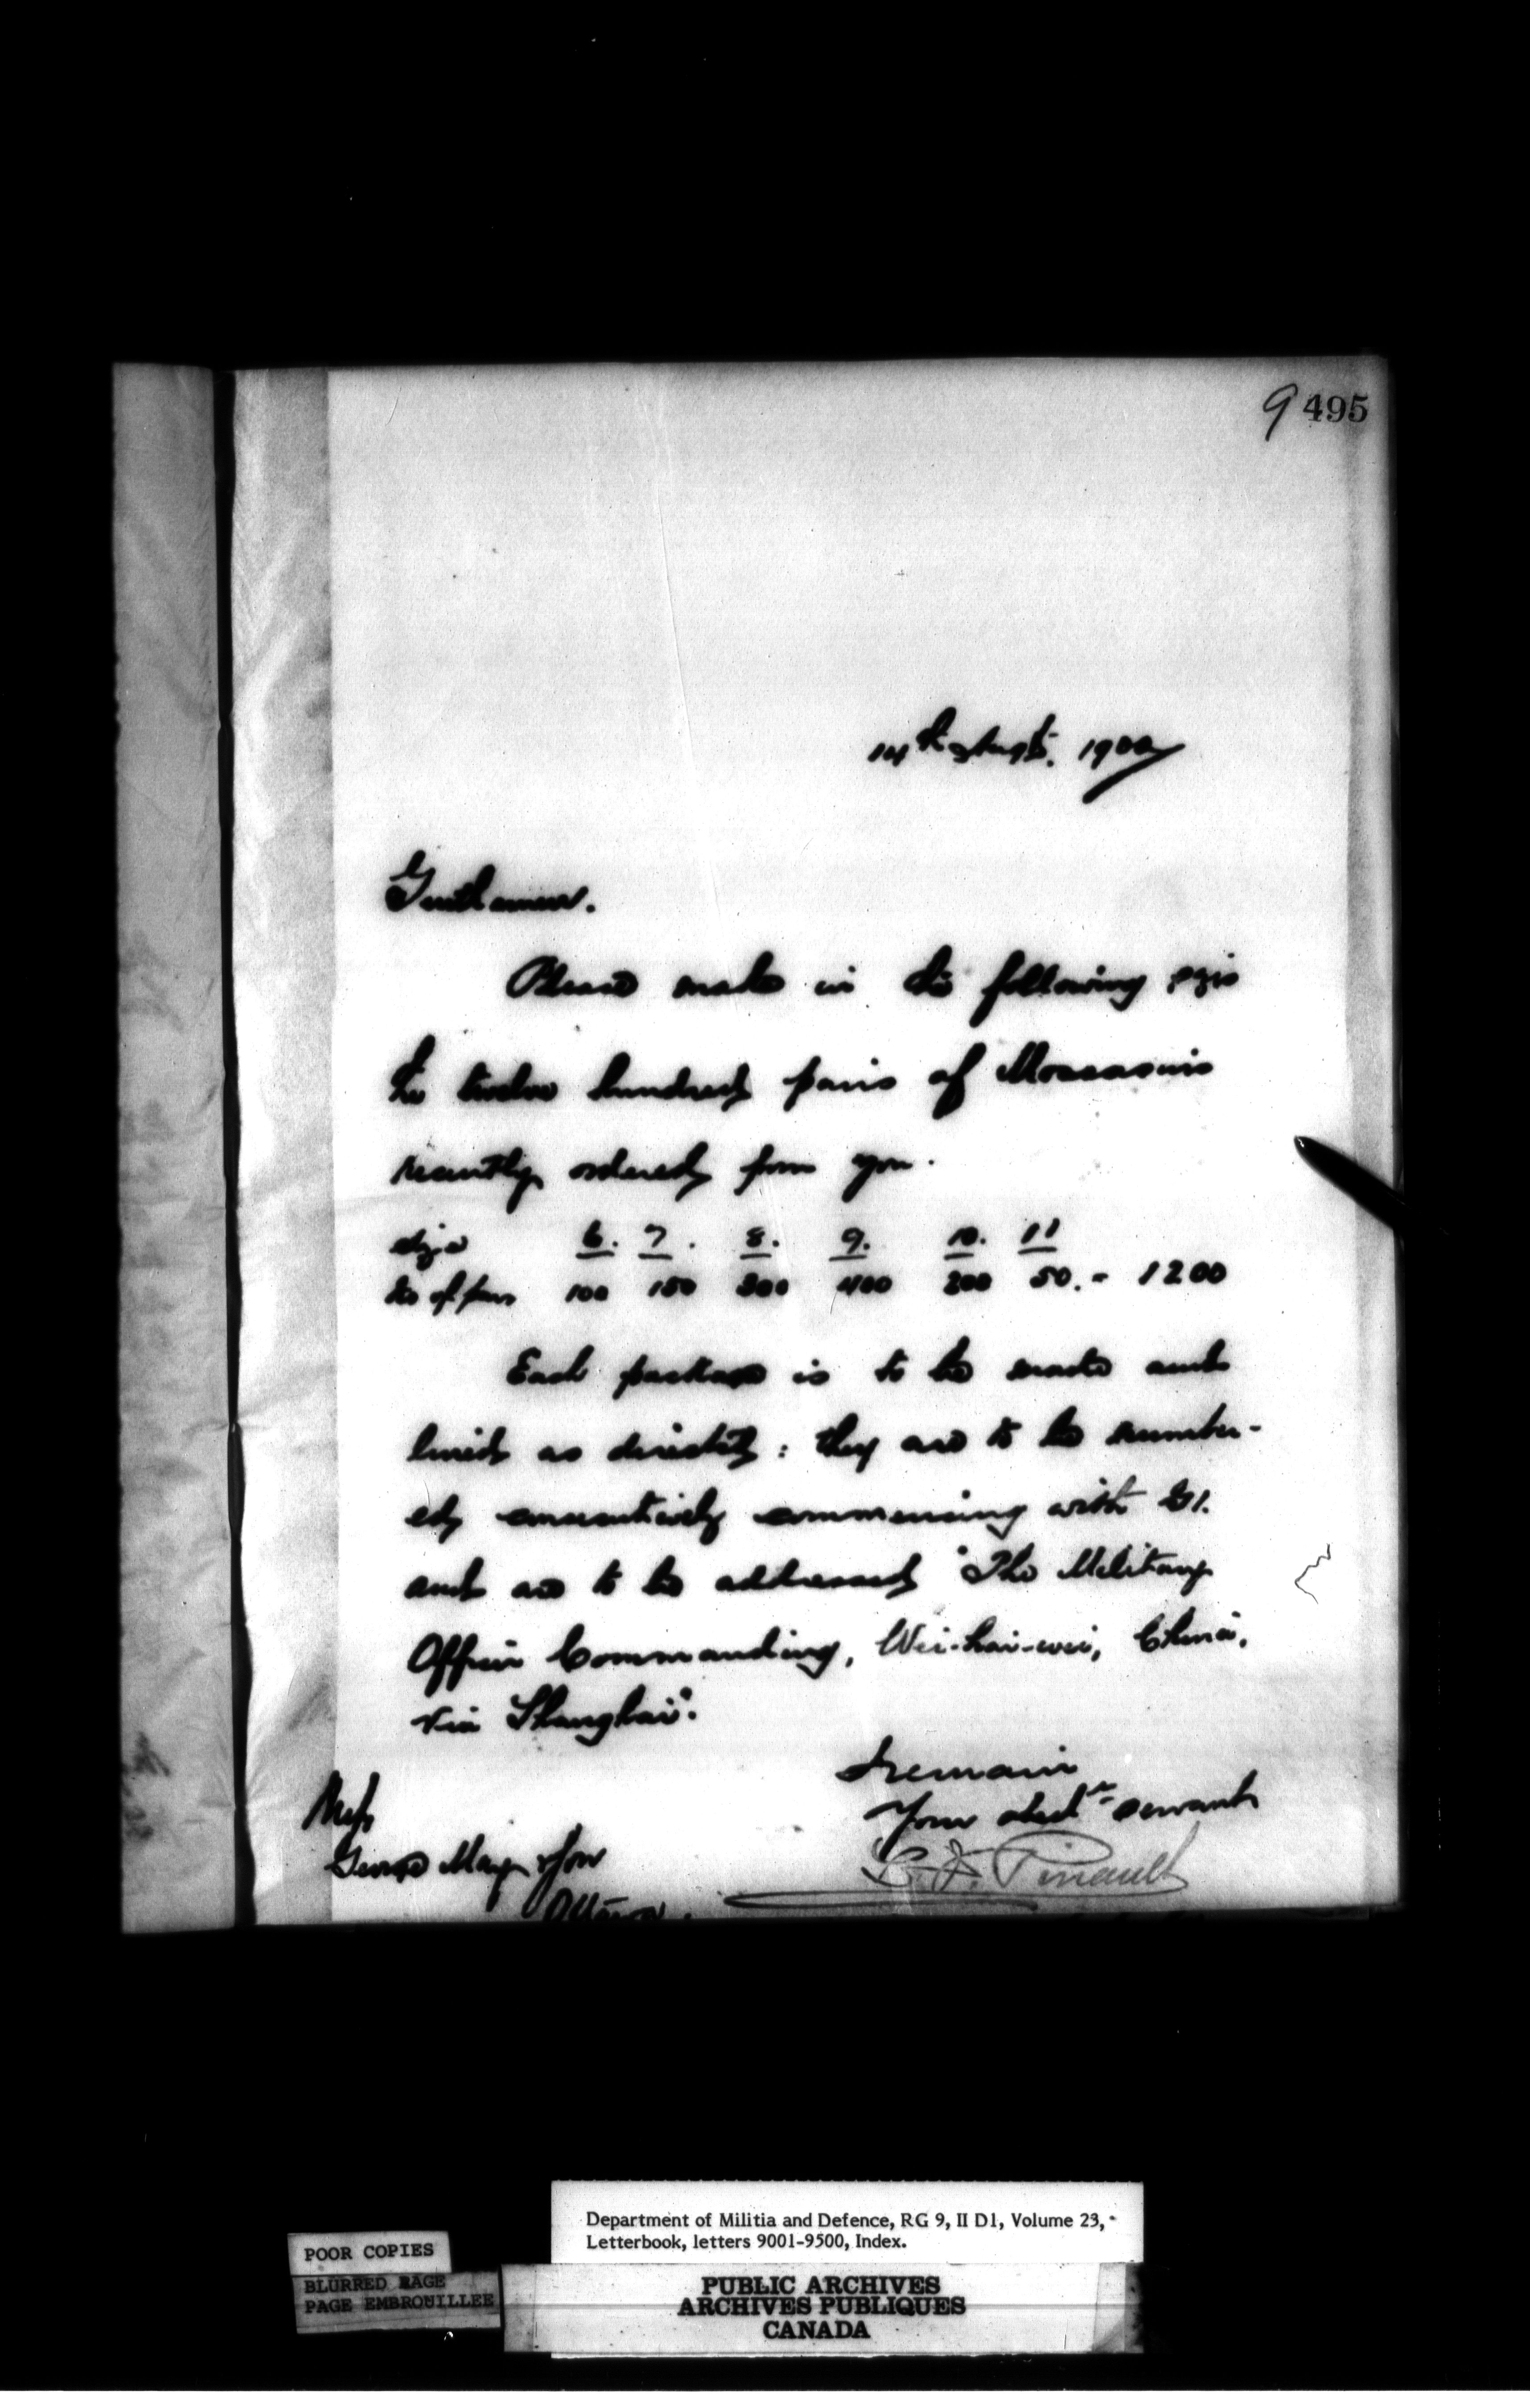 9495
14th Augt. 1900
Gentlemen.
Please make in the following size
the twelve hundred pairs of Moccasins
recently ordered from you.
size 6. 7. 8. 9. 10. 11
No of pairs 100 150 300 400 200 50. = 1200
Each package is to be made and
lined as directed: they are to be number-
ed consecutively commencing with
and are to be addressed "The Military
Officer Commanding, Wei-hai-wei, China,
via Shanghai".
I remain
Your obedt servant
L. F. Pinault
Messrs
George May & Son
Ottawa.
Department of Militia and Defence, RG 9, II D1, Volume 23,
Letterbook, letters 9001-9500, Index.
POOR COPIES
BLURRED PAGE
PAGE EMBROUILLEE
PUBLIC ARCHIVES
ARCHIVES PUBLIQUES
CANADA